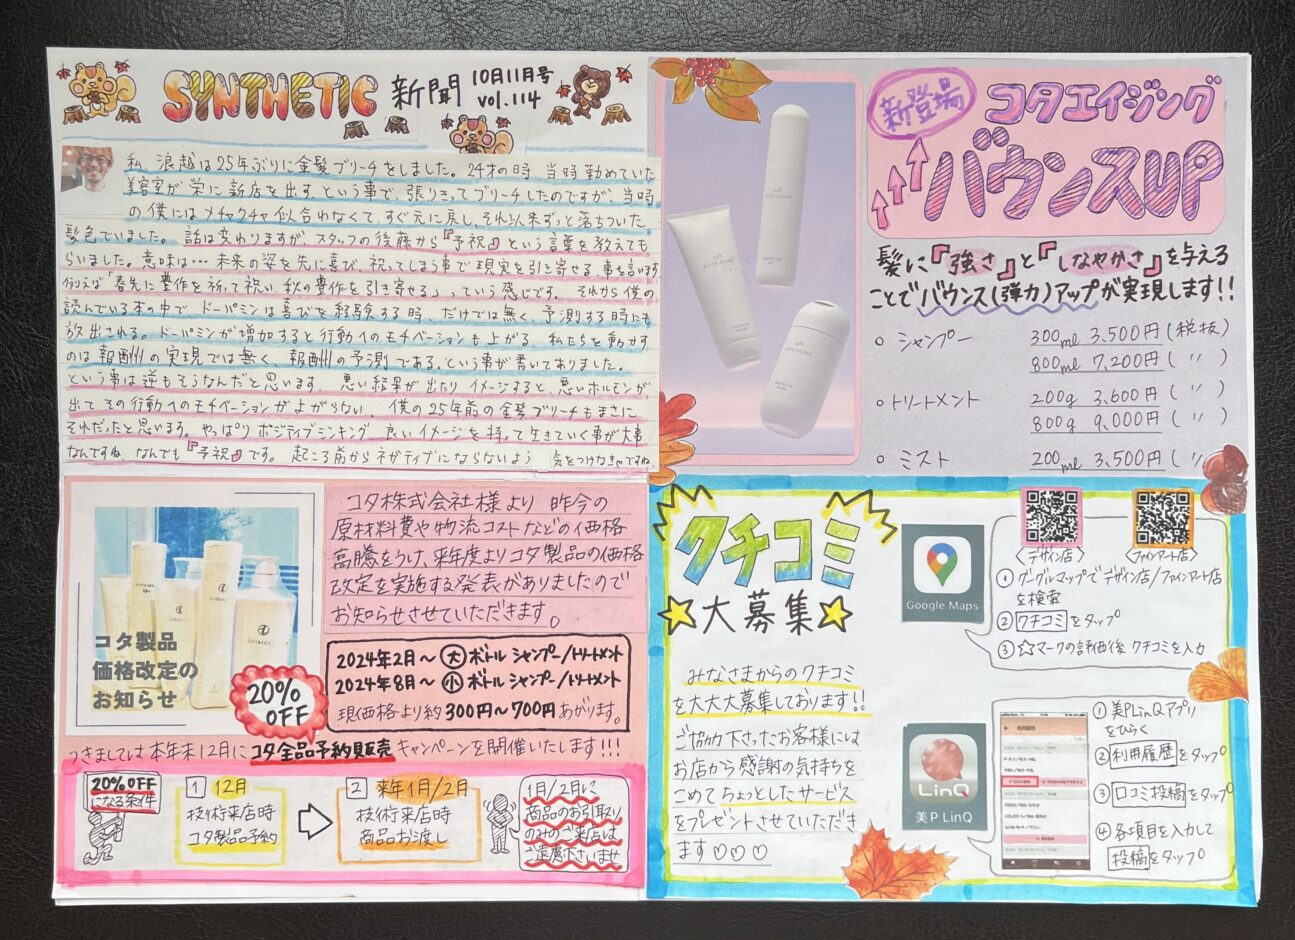 SYNTHETIC 新聞 10月11月号
vol.114
私、浪越は25年ぶりに金髪ブリーチをしました。24才の時、当時勤めていた
美容室が栄に新店を出す、という事で、張りきってブリーチしたのですが、当時
の僕にはメチャクチャ似合わなくて、すぐ元に戻し、それ以来ずっと落ちついた
髪色でいました。話は変わりますが、スタッフの後藤から『予祝』という言葉を教えても
らいました。意味は…未来の姿を先に喜び、祝ってしまう事で現実を引き寄せる事を言います
例えば「春先に豊作を祈って祝い、秋の豊作を引き寄せる」っていう感じです。それから僕の
読んでいる本の中で、ドーパミンは喜びを経験する時、だけでは無く、予測する時にも
放出される。ドーパミンが増加すると行動へのモチベーションも上がる。私たちを動かす
のは報酬の実現では無く、報酬の予測である。という事が書いてありました。
という事は逆もそうなんだと思います。悪い結果が出たりイメージすると、悪いホルモンが
出てその行動へのモチベーションがよがらない。僕の25年前の金髪ブリーチもまさに
それだったと思います。やっぱりポジティブシンキング、良いイメージを持って生きていく事が大事
なんですね、なんでも『予祝』です。起こる前からネガティブにならないよう 気をつけなきゃですね、
新登場
コタエイジング
バウンスUP
髪に『強さ』と『しなやかさ』を与える
ことでバウンス(弾力)アップが実現します!!
○ シャンプー 300ml 3,500円(税抜)
800ml 7,200円( 〃 )
○ トリートメント 200g 3,600円( 〃 )
800g 9,000円( 〃 )
○ ミスト 200ml 3,500円( 〃
コタ製品
価格改定の
お知らせ
コタ株式会社様より 昨今の
原材料費や物流コストなどの価格
高騰をうけ、来年度よりコタ製品の価格
改定を実施する発表がありましたので
お知らせさせていただきます。
20%
OFF
2024年2月~ 大 ボトル シャンプー/トリートメント
2024年8月~ 小 ボトル シャンプー/トリートメント
現価格より約300円~700円あがります。
つきましては本年末12月にコタ全品予約販売キャンペーンを開催いたします!!!
20%OFF
になる条件
1 12月
技術来店時
コタ製品予約
2 来年1月/2月
技術来店時
商品お渡し
1月/2月に
商品のお引取り
のみのご来店は
ご遠慮下さいませ
クチコミ
☆大募集☆
みなさまからのクチコミ
を大大大募集しております!!
ご協力下さったお客様には
お店から感謝の気持ちを
こめてちょっとしたサービス
をプレゼントさせていただき
ます♡♡♡
Google Maps
〈デザイン店〉 〈ファインアート店〉
① グーグルマップでデザイン店/ファインアート店
を検索
② クチコミをタップ
③ ☆マークの評価後 クチコミを入力
LinQ
美P LinQ
① 美PLinQアプリ
をひらく
② 利用履歴をタップ
③ 口コミ投稿をタップ
④ 各項目を入力して
投稿をタップ